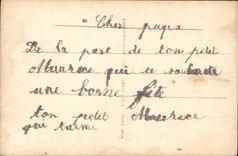 Cher papa
De la part de ton petit
Maurice qui te souhaite
une bonne fête
ton petit Maurice
qui t'aime